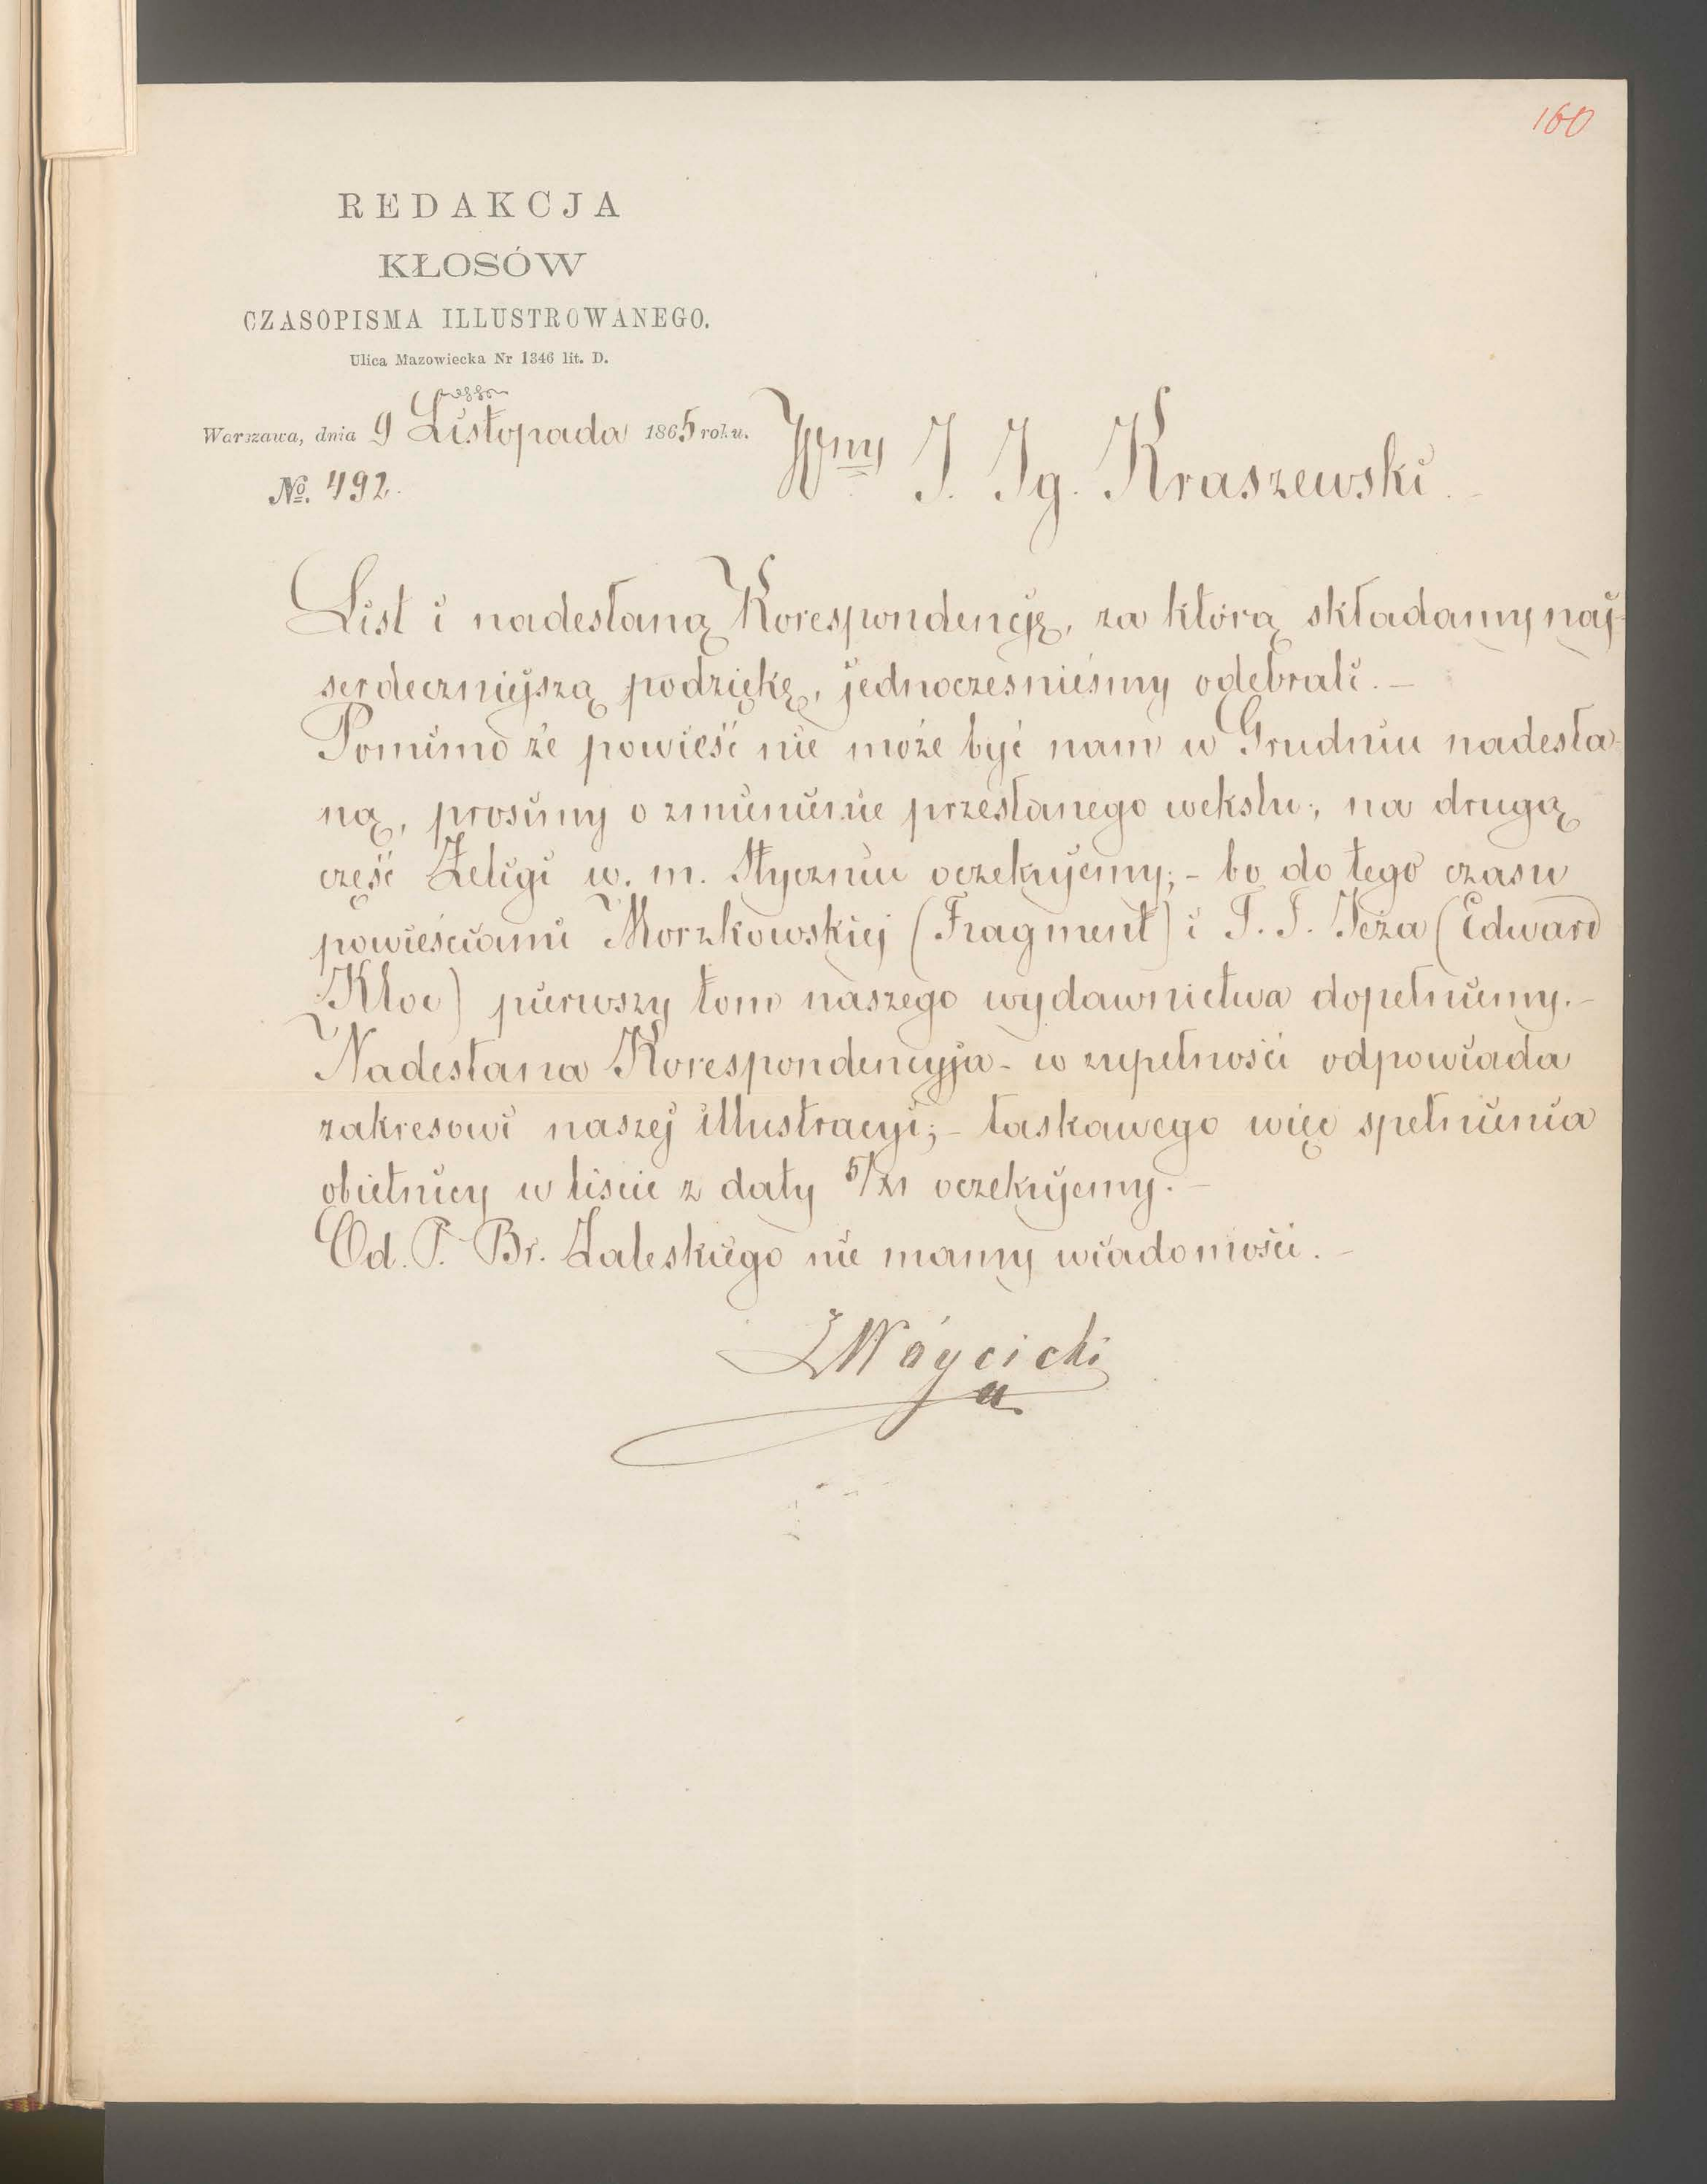 160
REDAKCJA
KŁOSÓW
CZASOPISMA ILLUSTROWANEGO.
Ulica Mazowiecka Nr 1346 lit. D.
Warszawa, dnia 9 Listopada 1865 roku.
No. 492.
Wny J. Ig. Kraszewski.
List i nadesłaną Korespondencję, za którą składamy naj-
serdeczniejszą podziękę, jednocześnieśmy odebrali. –
Pomimo że powieść nie może być nam w Grudniu nadesła-
ną, prosimy o zmienienie przesłanego wekslu; na drugą
część Zeligi w. m. Styczniu oczekujemy; – bo do tego czasu
powieściami Morzkowskiej (Fragment) i T. T. Jeża (Edward
Kloc) pierwszy tom naszego wydawnictwa dopełniemy. –
Nadesłana Korespondencyja – w zupełności odpowiada
zakresowi naszej illustracyi; – łaskawego więc spełnienia
obietnicy w liście z daty 5/XI oczekujemy. –
Od. P. Br. Zaleskiego nie mamy wiadomości. –
Wóycicki